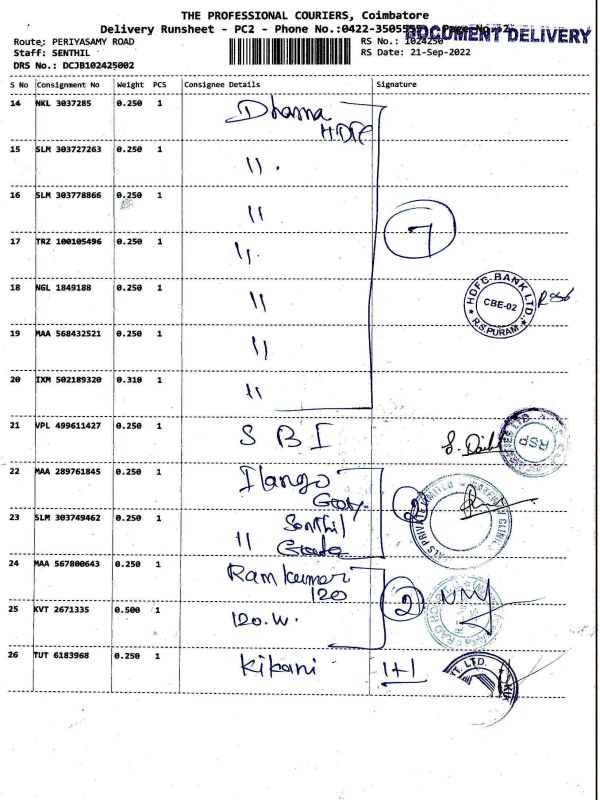 THE PROFESSIONAL COURIERS, Coimbatore
Delivery Runsheet - PC2 - Phone No.:0422-3505555
DOCUMENT DELIVERY
Route: PERIYASAMY ROAD
RS No.: 1024250
Staff: SENTHIL
RS Date: 21-Sep-2022
DRS No.: DCJB102425002
S No Consignment No Weight PCS Consignee Details Signature
14 NKL 3037285 0.250 1 Dhama
HDFC
15 SLM 303727263 0.250 1 11 .
16 SLM 303778866 0.250 1 11
17 TRZ 100105496 0.250 1 11.
7
18 NGL 1849188 0.250 1 11
HDFC BANK LTD.
CBE-02
R.S.PURAM
19 MAA 568432521 0.250 1 11
20 IXM 502189320 0.310 1 11
21 VPL 499611427 0.250 1 SBI
RSP
22 MAA 289761845 0.250 1 Ilango
2
23 SLM 303749462 0.250 1 Senthil
11
24 MAA 567800643 0.250 1 Ram kumar
120
2
25 KVT 2671335 0.500 1 120.W.
26 TUT 6183968 0.250 1 Kikani 1+1